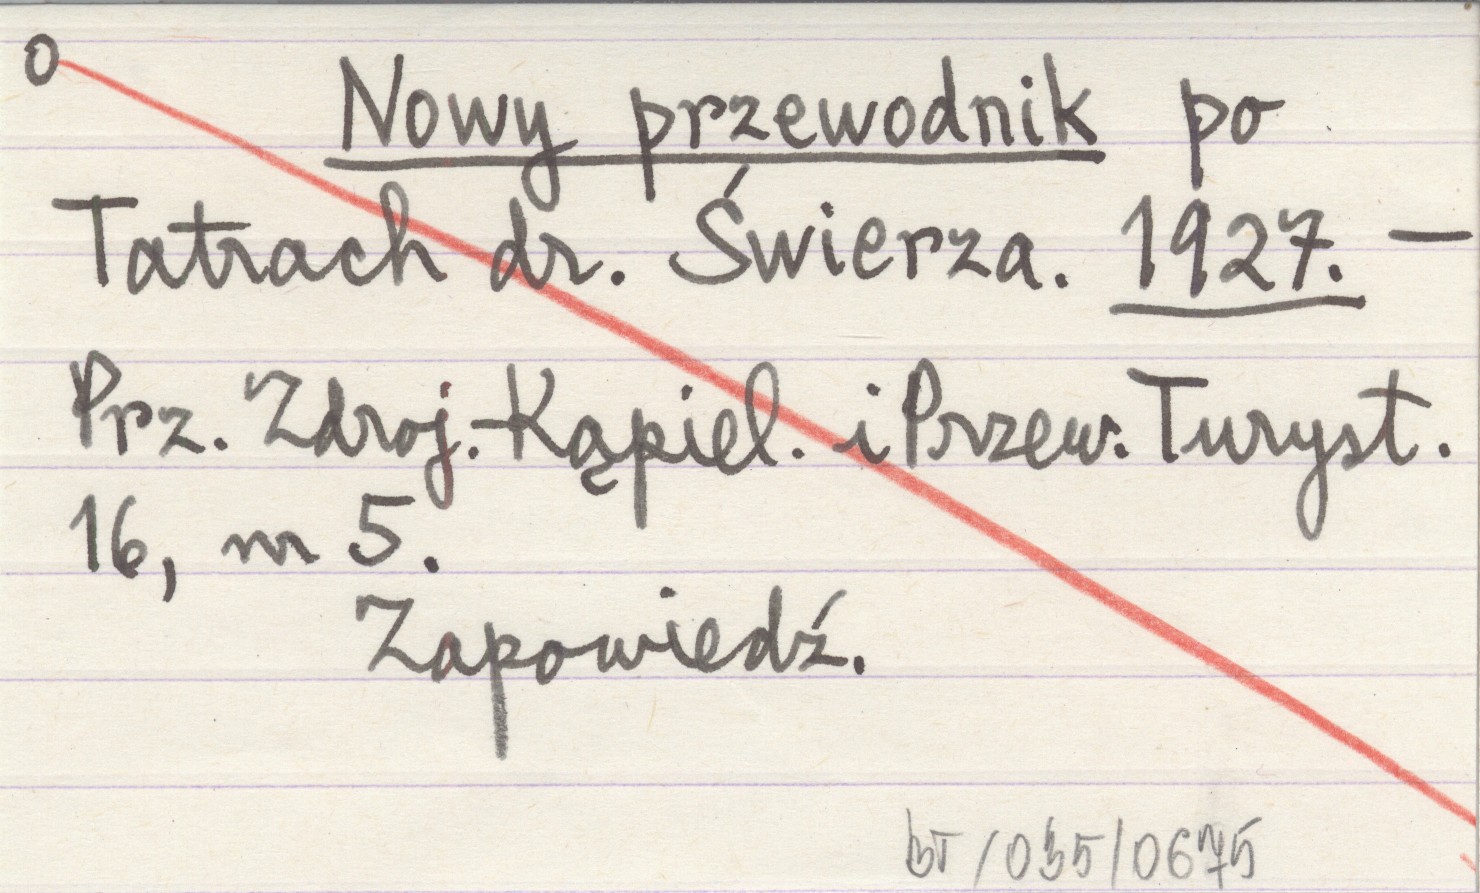 0
Nowy przewodnik po
Tatrach dr. Świerza. 1927. —
Prz. Zdroj.-Kąpiel. i Przew. Turyst.
16, nr 5.
Zapowiedź.
BT/035/0675